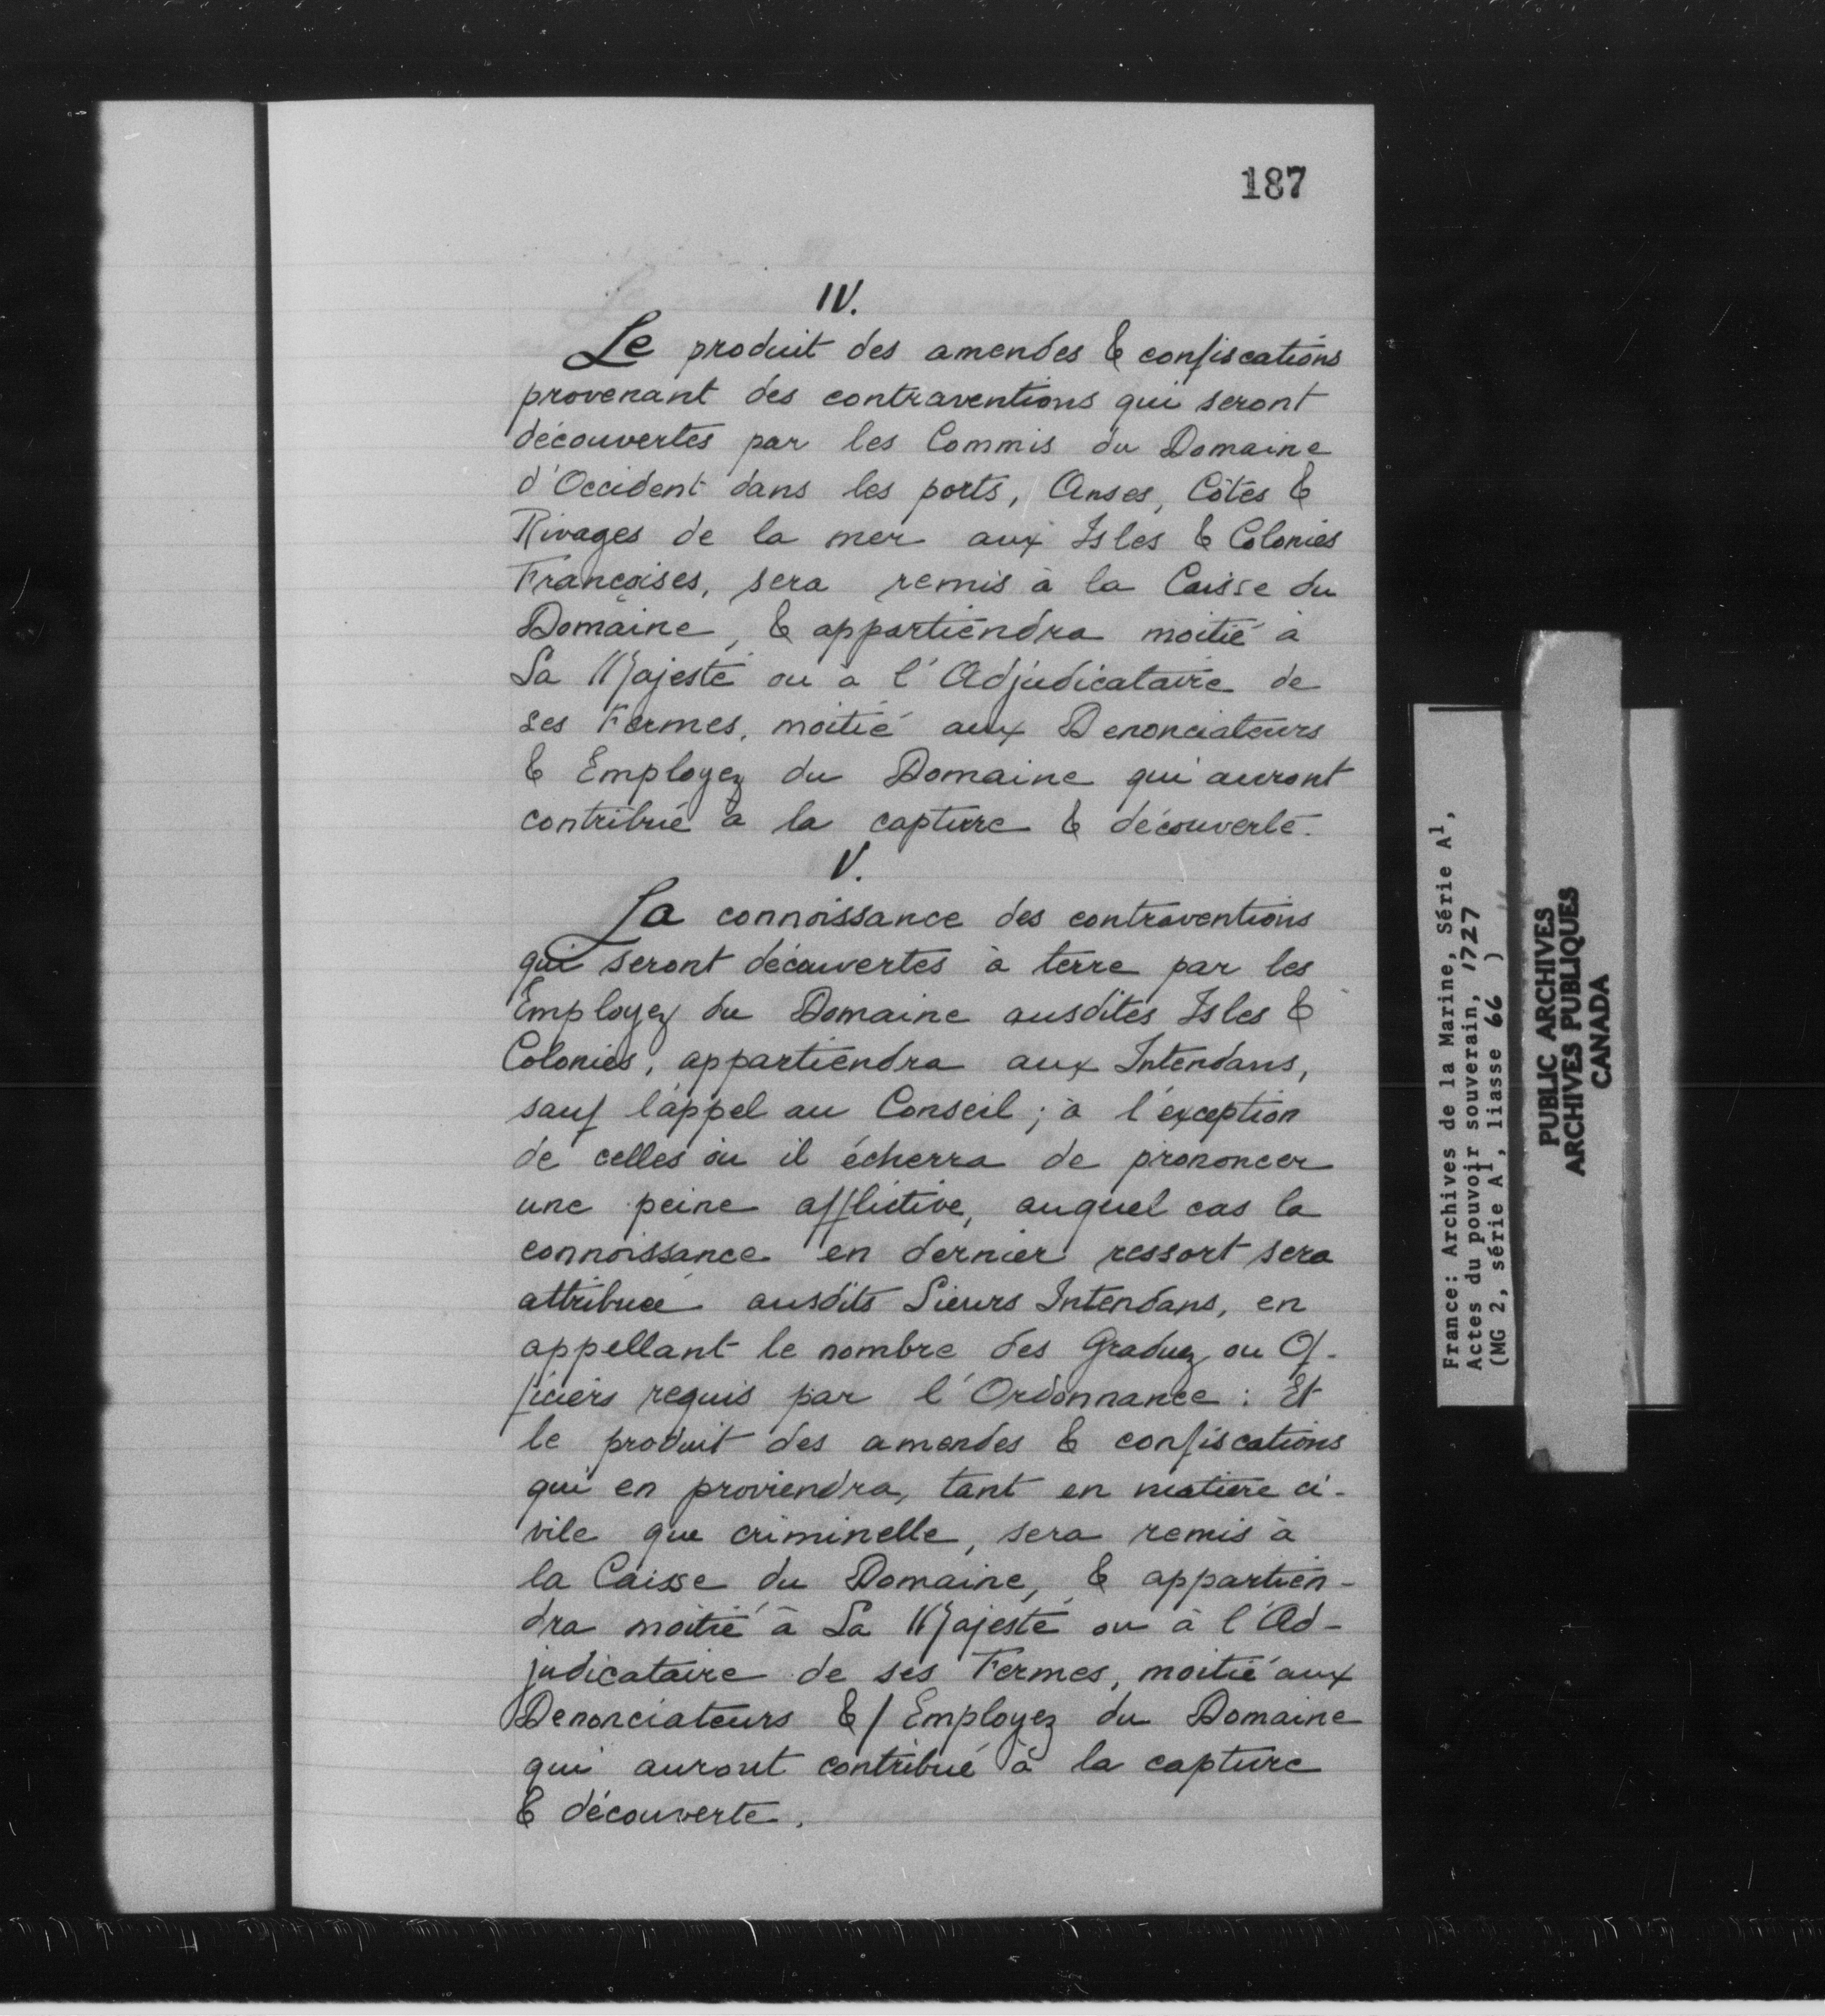 187
IV.
Le produit des amendes & confiscations
provenant des contraventions qui seront
découvertes par les Commis du Domaine
d'Occident dans les ports, Anses, Côtes &
Rivages de la mer aux Isles & Colonies
Françoises, sera remis à la Caisse du
Domaine, & appartiendra moitié à
Sa Majesté ou à l'Adjudicataire de
ses Fermes, moitié aux Denonciateurs
& Employez du Domaine qui auront
contribué à la capture & découverte.
V.
La connoissance des contraventions
qui seront découvertes à terre par les
Employez du Domaine ausdites Isles &
Colonies, appartiendra aux Intendans,
sauf l'appel au Conseil; à l'exception
de celles où il écherra de prononcer
une peine afflictive, auquel cas la
connoissance en dernier ressort sera
attribuée ausdits Sieurs Intendans, en
appellant le nombre des Graduez ou Of-
ficiers requis par l'Ordonnance: Et
le produit des amendes & confiscations
qui en proviendra, tant en matiere ci-
vile que criminelle, sera remis à
la Caisse du Domaine, & appartien-
dra moitié à Sa Majesté ou à l'Ad-
judicataire de ses Fermes, moitié aux
Denonciateurs &/Employez du Domaine
qui auront contribué à la capture
& découverte.
France: Archives de la Marine, Série A1,
Actes du pouvoir souverain, 1727
(MG 2, série A1, liasse 66 )
PUBLIC ARCHIVES
ARCHIVES PUBLIQUES
CANADA